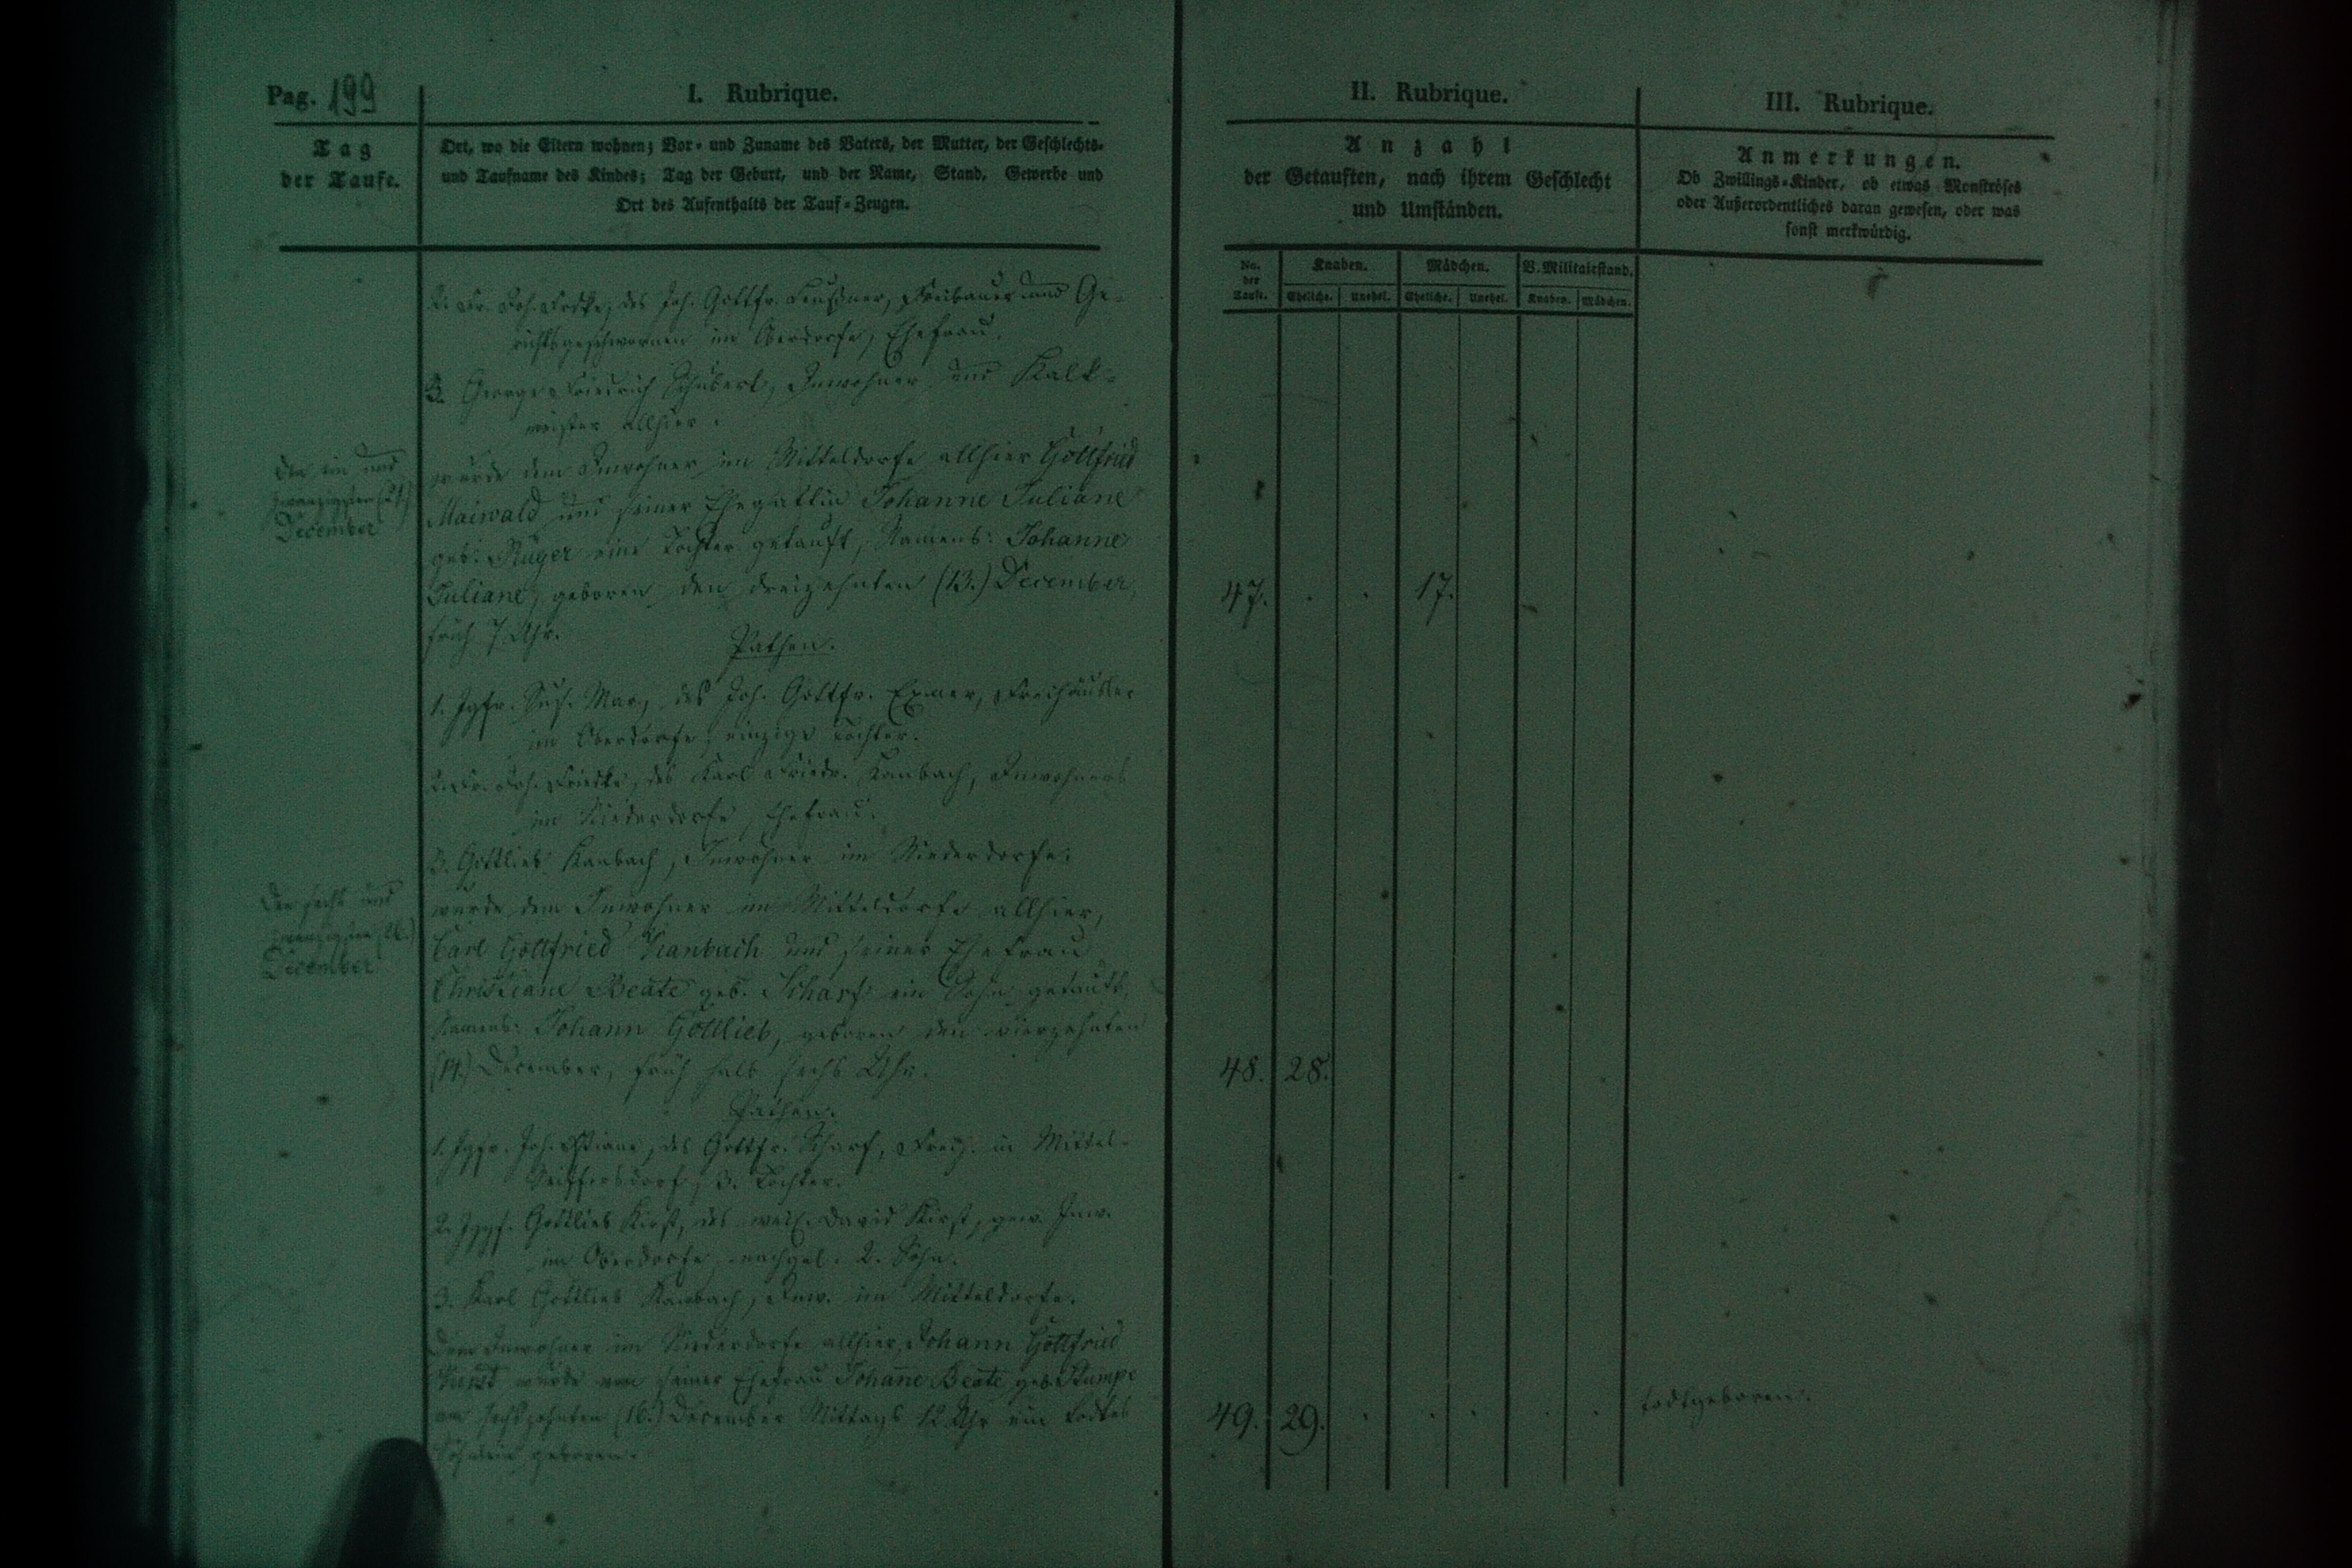 Pag. 199
I. Rubrique.
Tag
der Taufe.
Ort, wo die Eltern wohnen; Vor- und Zuname des Vaters, der Mutter, der Geschlechts-
und Taufname des Kindes; Tag der Geburt, und der Name, Stand, Gewerbe und
Ort des Aufenthalts der Tauf-Zeugen.
2. Fr. Joh. des Joh. Gottfr. Freibauer und Ge-
richtsgeschwornen im Oberdorfe, Ehefrau.
3. George Friedrich Schubert, Inwohner und Kalk-
meister allhier.
Den ein und
zwanzigsten (21.)
December
wurde dem Inwohner im Mitteldorfe allhier Gottfried
Maiwald und seiner Ehegattin Johanne Juliane
geb. Rüger eine Tochter getauft, Namens: Johanne
Juliane, geboren den dreizehnten (13.) December,
früh 7 Uhr.
Pathen.
1. Jgfr. Sus. Mar., des Joh. Gottfr. Exner, Freihäusler
im Oberdorfe, einzige Tochter.
2. Fr. Joh. Friedke, des Karl Friedr. Kanbach, Inwohners
im Niederdorfe, Ehefrau.
3. Gottlieb Kanbach, Inwohner im Niederdorfe.
Den sechs und
zwanzigsten (26.)
December
wurde dem Inwohner im Mitteldorfe allhier,
Carl Gottfried Kanbach und seiner Ehefrau
Christiane Beate geb. Scharf ein Sohn getauft,
Namens: Johann Gottlieb, geboren den vierzehnten
(14.) December, früh halb sechs Uhr.
Pathen.
1. Jgfr. Joh. des Gottfr. Scharf, in Mittel-
Seiffersdorf, 3. Tochter.
2. Jggs. Gottlieb Kirst, des weil. David Kirst, gew. Inw.
im Oberdorfe, nachgel. 2. Sohn.
3. Karl Gottlieb Kanbach, Inw. im Mitteldorfe.
Dem Inwohner im Niederdorfe allhier, Johann Gottfried
wurde von seiner Ehefrau Johane Beate geb. Stumpe
am sechszehnten (16.) December Mittags 12 Uhr ein todtes
Söhnlein geboren.
II. Rubrique.
Anzahl
der Getauften, nach ihrem Geschlecht
und Umständen.
No.
der
Taufe.
Knaben.
Mädchen.
B. Militairstand.
Eheliche. Unehel. Eheliche. Unehel. Knaben. Mädchen.
47. . . 17.
48. 28.
49. 29. . . . . .
III. Rubrique.
Anmerkungen.
Ob Zwillings-Kinder, ob etwas Monströses
oder Außerordentliches daran gewesen, oder was
sonst merkwürdig.
todtgeboren.